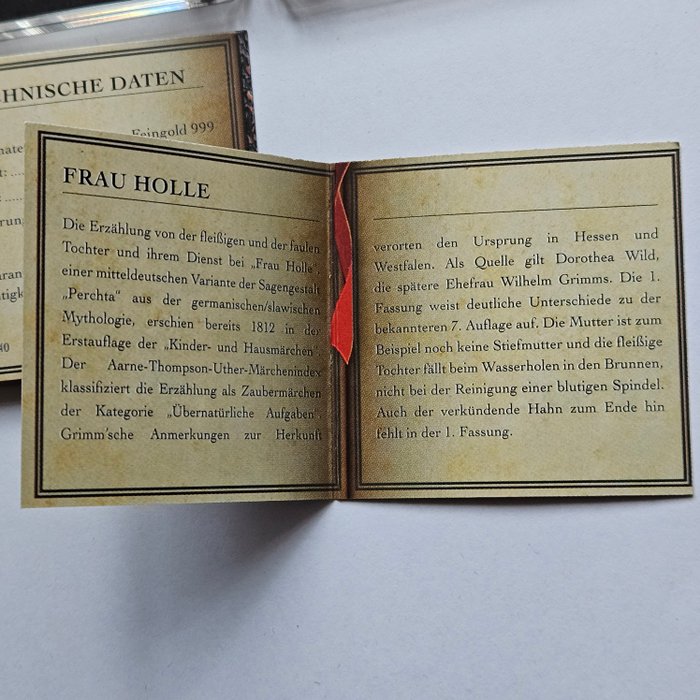 CHNISCHE DATEN
Feingold 999
FRAU HOLLE
Die Erzählung von der fleißigen und der faulen
Tochter und ihrem Dienst bei „Frau Holle“,
einer mitteldeutschen Variante der Sagengestalt
„Perchta“ aus der germanischen/slawischen
Mythologie, erschien bereits 1812 in der
Erstauflage der „Kinder- und Hausmärchen“.
Der Aarne-Thompson-Uther-Märchenindex
klassifiziert die Erzählung als Zaubermärchen
der Kategorie „Übernatürliche Aufgaben“.
Grimm'sche Anmerkungen zur Herkunft
verorten den Ursprung in Hessen und
Westfalen. Als Quelle gilt Dorothea Wild,
die spätere Ehefrau Wilhelm Grimms. Die 1.
Fassung weist deutliche Unterschiede zu der
bekannteren 7. Auflage auf. Die Mutter ist zum
Beispiel noch keine Stiefmutter und die fleißige
Tochter fällt beim Wasserholen in den Brunnen,
nicht bei der Reinigung einer blutigen Spindel.
Auch der verkündende Hahn zum Ende hin
fehlt in der 1. Fassung.